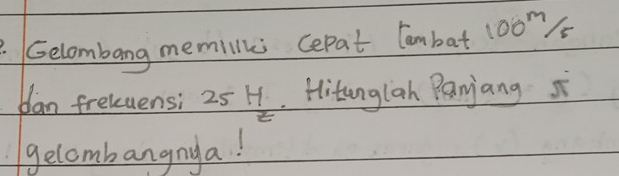 2. Gelombang memiliki cepat rambat 100 m/s
dan frekuensi 25 Hz. Hitunglah Panjang
gelombangnya!